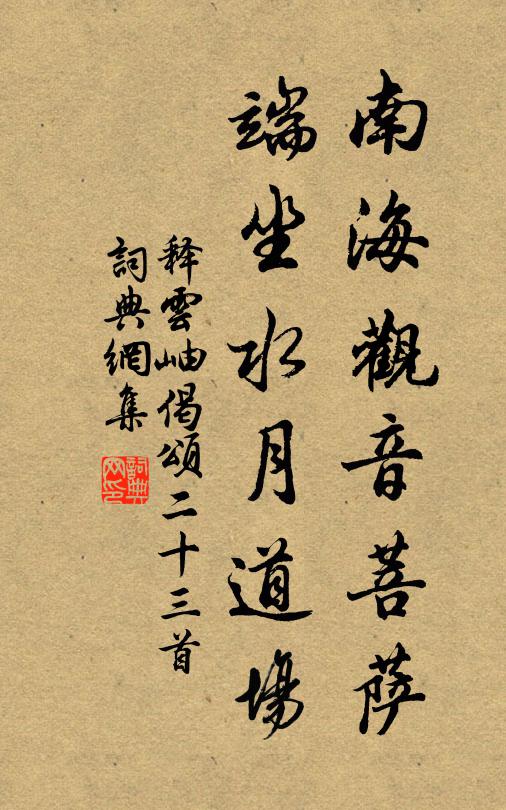 南海觀音菩薩
端坐水月道場
释雲岫偈頌二十三首
詞典網集
詞典网印